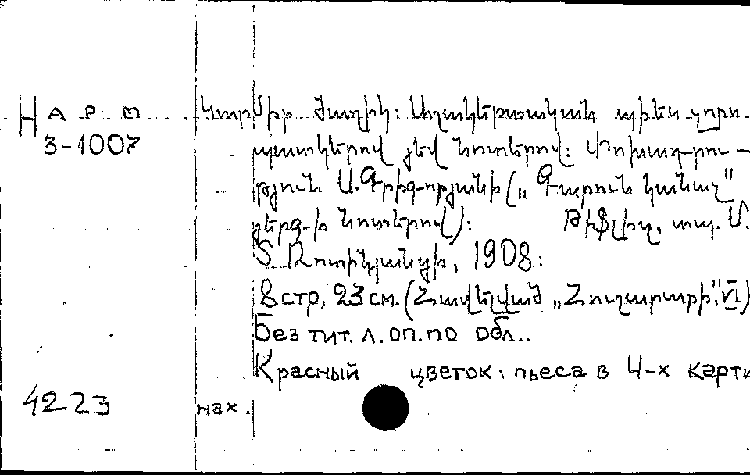 Н А Р Ф Կարմիր ծաղիկ: Աշակերտական պիես չորս
3-1007 պատկերով յեվ նոտերով: Փոխադրու-
թյուն Ա. Գրիգորյանի („Գարուն կանաչ"
յերգ-ի նոտերով): Թիֆլիզ, տպ. Ս.
Տ. Ռոտինյանցի, 1908:
8 стр, 23 см. (Հավելված „Հուշարարի", VI)
Без тит. л. оп. по обл..
Красный цветок: пьеса в 4-х карти
4223 нах.